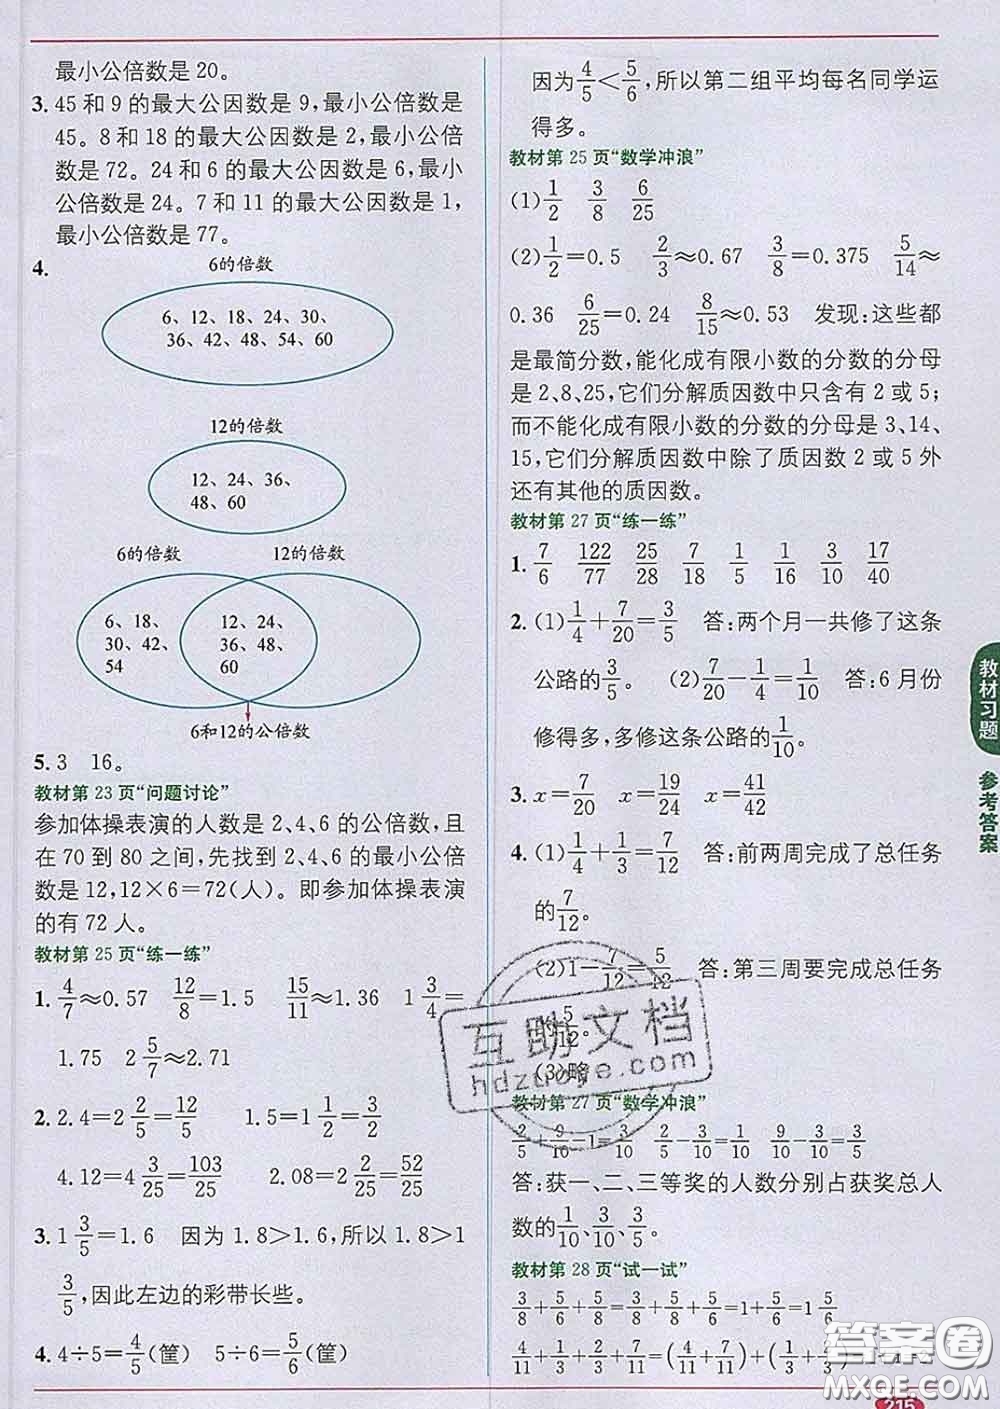 最小公倍数是 20。
3. 45 和 9 的最大公因数是 9,最小公倍数是
45。8 和 18 的最大公因数是 2,最小公倍
数是 72。24 和 6 的最大公因数是 6,最小
公倍数是 24。7 和 11 的最大公因数是 1,
最小公倍数是 77。
4.
6的倍数
6、12、18、24、30、
36、42、48、54、60
12的倍数
12、24、36、
48、60
6的倍数 12的倍数
6、18、
30、42、
54
12、24、
36、48、
60
6和12的公倍数
5. 3 16。
教材第 23 页“问题讨论”
参加体操表演的人数是 2、4、6 的公倍数,且
在 70 到 80 之间,先找到 2、4、6 的最小公倍
数是 12,12×6=72(人)。即参加体操表演
的有 72 人。
教材第 25 页“练一练”
1. 4/7≈0.57 12/8=1.5 15/11≈1.36 1 3/4=
1.75 2 5/7≈2.71
2. 2.4=2 2/5=12/5 1.5=1 1/2=3/2
4.12=4 3/25=103/25 2.08=2 2/25=52/25
3. 1 3/5=1.6 因为 1.8>1.6,所以 1.8>1
3/5,因此左边的彩带长些。
4. 4÷5=4/5(筐) 5÷6=5/6(筐)
因为4/5<5/6,所以第二组平均每名同学运
得多。
教材第 25 页“数学冲浪”
(1)1/2 3/8 6/25
(2)1/2=0.5 2/3≈0.67 3/8=0.375 5/14≈
0.36 6/25=0.24 8/15≈0.53 发现:这些都
是最简分数,能化成有限小数的分数的分母
是 2、8、25,它们分解质因数中只含有 2 或 5;
而不能化成有限小数的分数的分母是 3、14、
15,它们分解质因数中除了质因数 2 或 5 外
还有其他的质因数。
教材第 27 页“练一练”
1. 7/6 122/77 25/28 7/18 1/5 1/16 3/10 17/40
2. (1)1/4+7/20=3/5 答:两个月一共修了这条
公路的3/5。 (2)7/20-1/4=1/10 答:6 月份
修得多,多修这条公路的1/10。
3. x=7/20 x=19/24 x=41/42
4. (1)1/4+1/3=7/12 答:前两周完成了总任务
的7/12。
(2)1-7/12=5/12 答:第三周要完成总任务
的5/12。
(3)略。
教材第 27 页“数学冲浪”
2/5+9/10-1=3/10 2/5-3/10=1/10 9/10-3/10=3/5
答:获一、二、三等奖的人数分别占获奖总人
数的1/10、3/10、3/5。
教材第 28 页“试一试”
3/8+5/6+5/8=3/8+5/8+5/6=1+5/6=1 5/6
4/11+1/3+2/3+7/11=(4/11+7/11)+(1/3+2/3)=1+1
教材习题
参考答案
互助文档
hdzuoye.com
答案圈
MXQE.COM
215